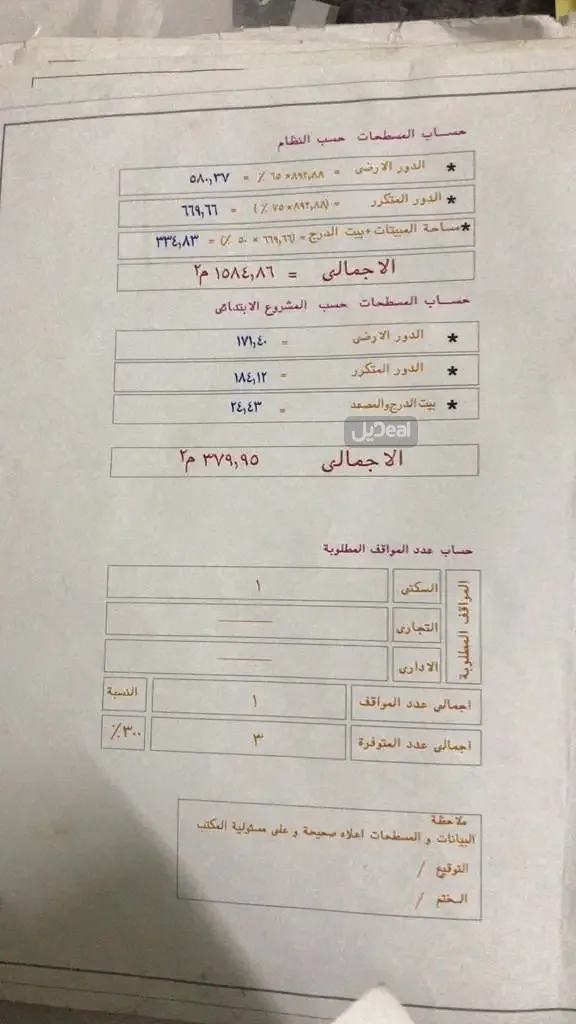 حساب المسطحات حسب النظام
* الدور الارضى = ٨٩٢,٨٨×٦٥ ٪ = ٥٨٠,٣٧
* الدور المتكرر = (٨٩٢,٨٨×٧٥ ٪) = ٦٦٩,٦٦
* مساحة المبيتات+بيت الدرج = (٦٦٩,٦٦ × ٥٠ ٪) = ٣٣٤,٨٣
الاجمالى = ١٥٨٤,٨٦ م٢
حساب المسطحات حسب المشروع الابتدائى
* الدور الارضى = ١٧١,٤٠
* الدور المتكرر = ١٨٤,١٢
* بيت الدرج والمصعد = ٢٤,٤٣
ديل Deal
الاجمالى ٣٧٩,٩٥ م٢
حساب عدد المواقف المطلوبة
المواقف المطلوبة
السكنى ١
التجارى
الادارى
اجمالى عدد المواقف ١ النسبة
اجمالى عدد المتوفرة ٣ ٣٠٠٪
ملاحظة
البيانات و المسطحات اعلاه صحيحة و على مسئولية المكتب
التوقيع /
الختم /